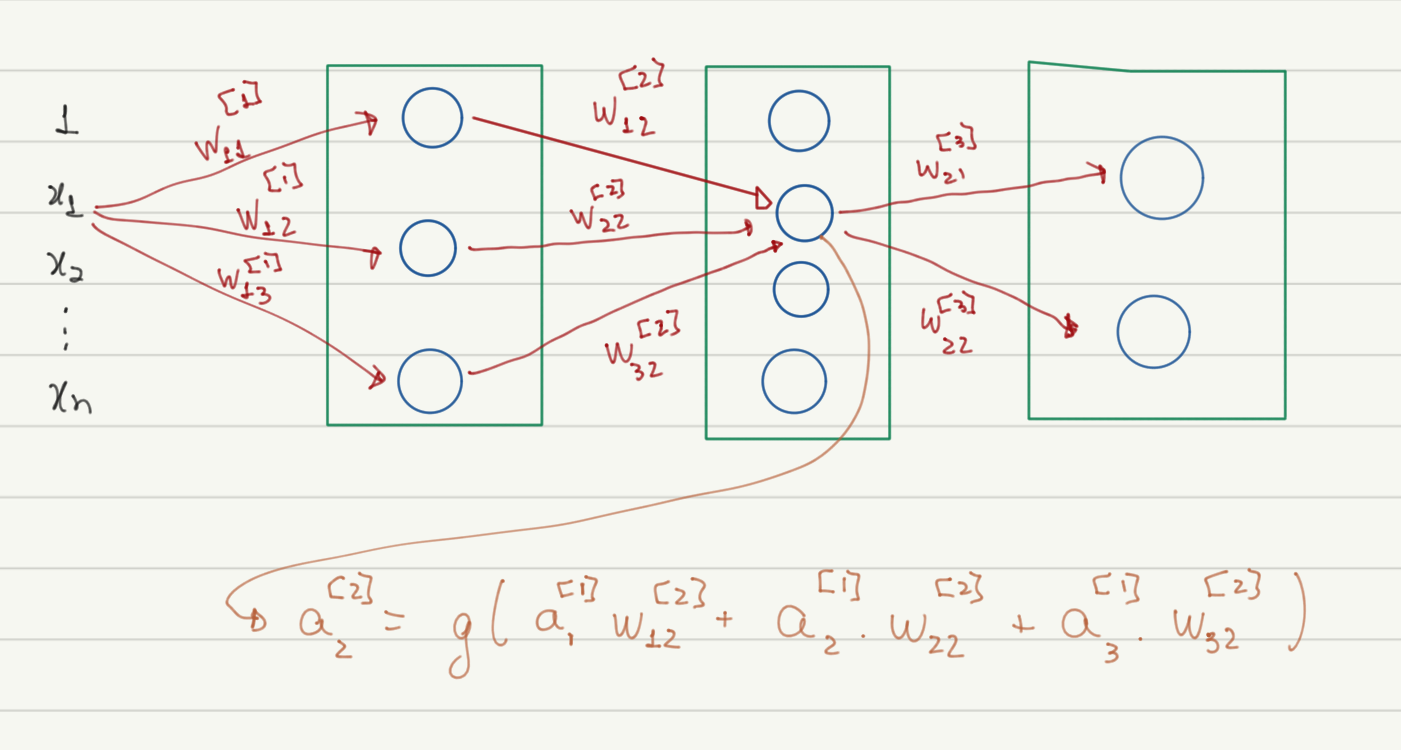 1
x₁
x₂
⋮
xₙ
w₁₁^[1]
w₁₂^[1]
w₁₃^[1]
w₁₂^[2]
w₂₂^[2]
w₃₂^[2]
w₂₁^[3]
w₂₂^[3]
a₂^[2] = g( a₁^[1] w₁₂^[2] + a₂^[1] . w₂₂^[2] + a₃^[1] . w₃₂^[2] )